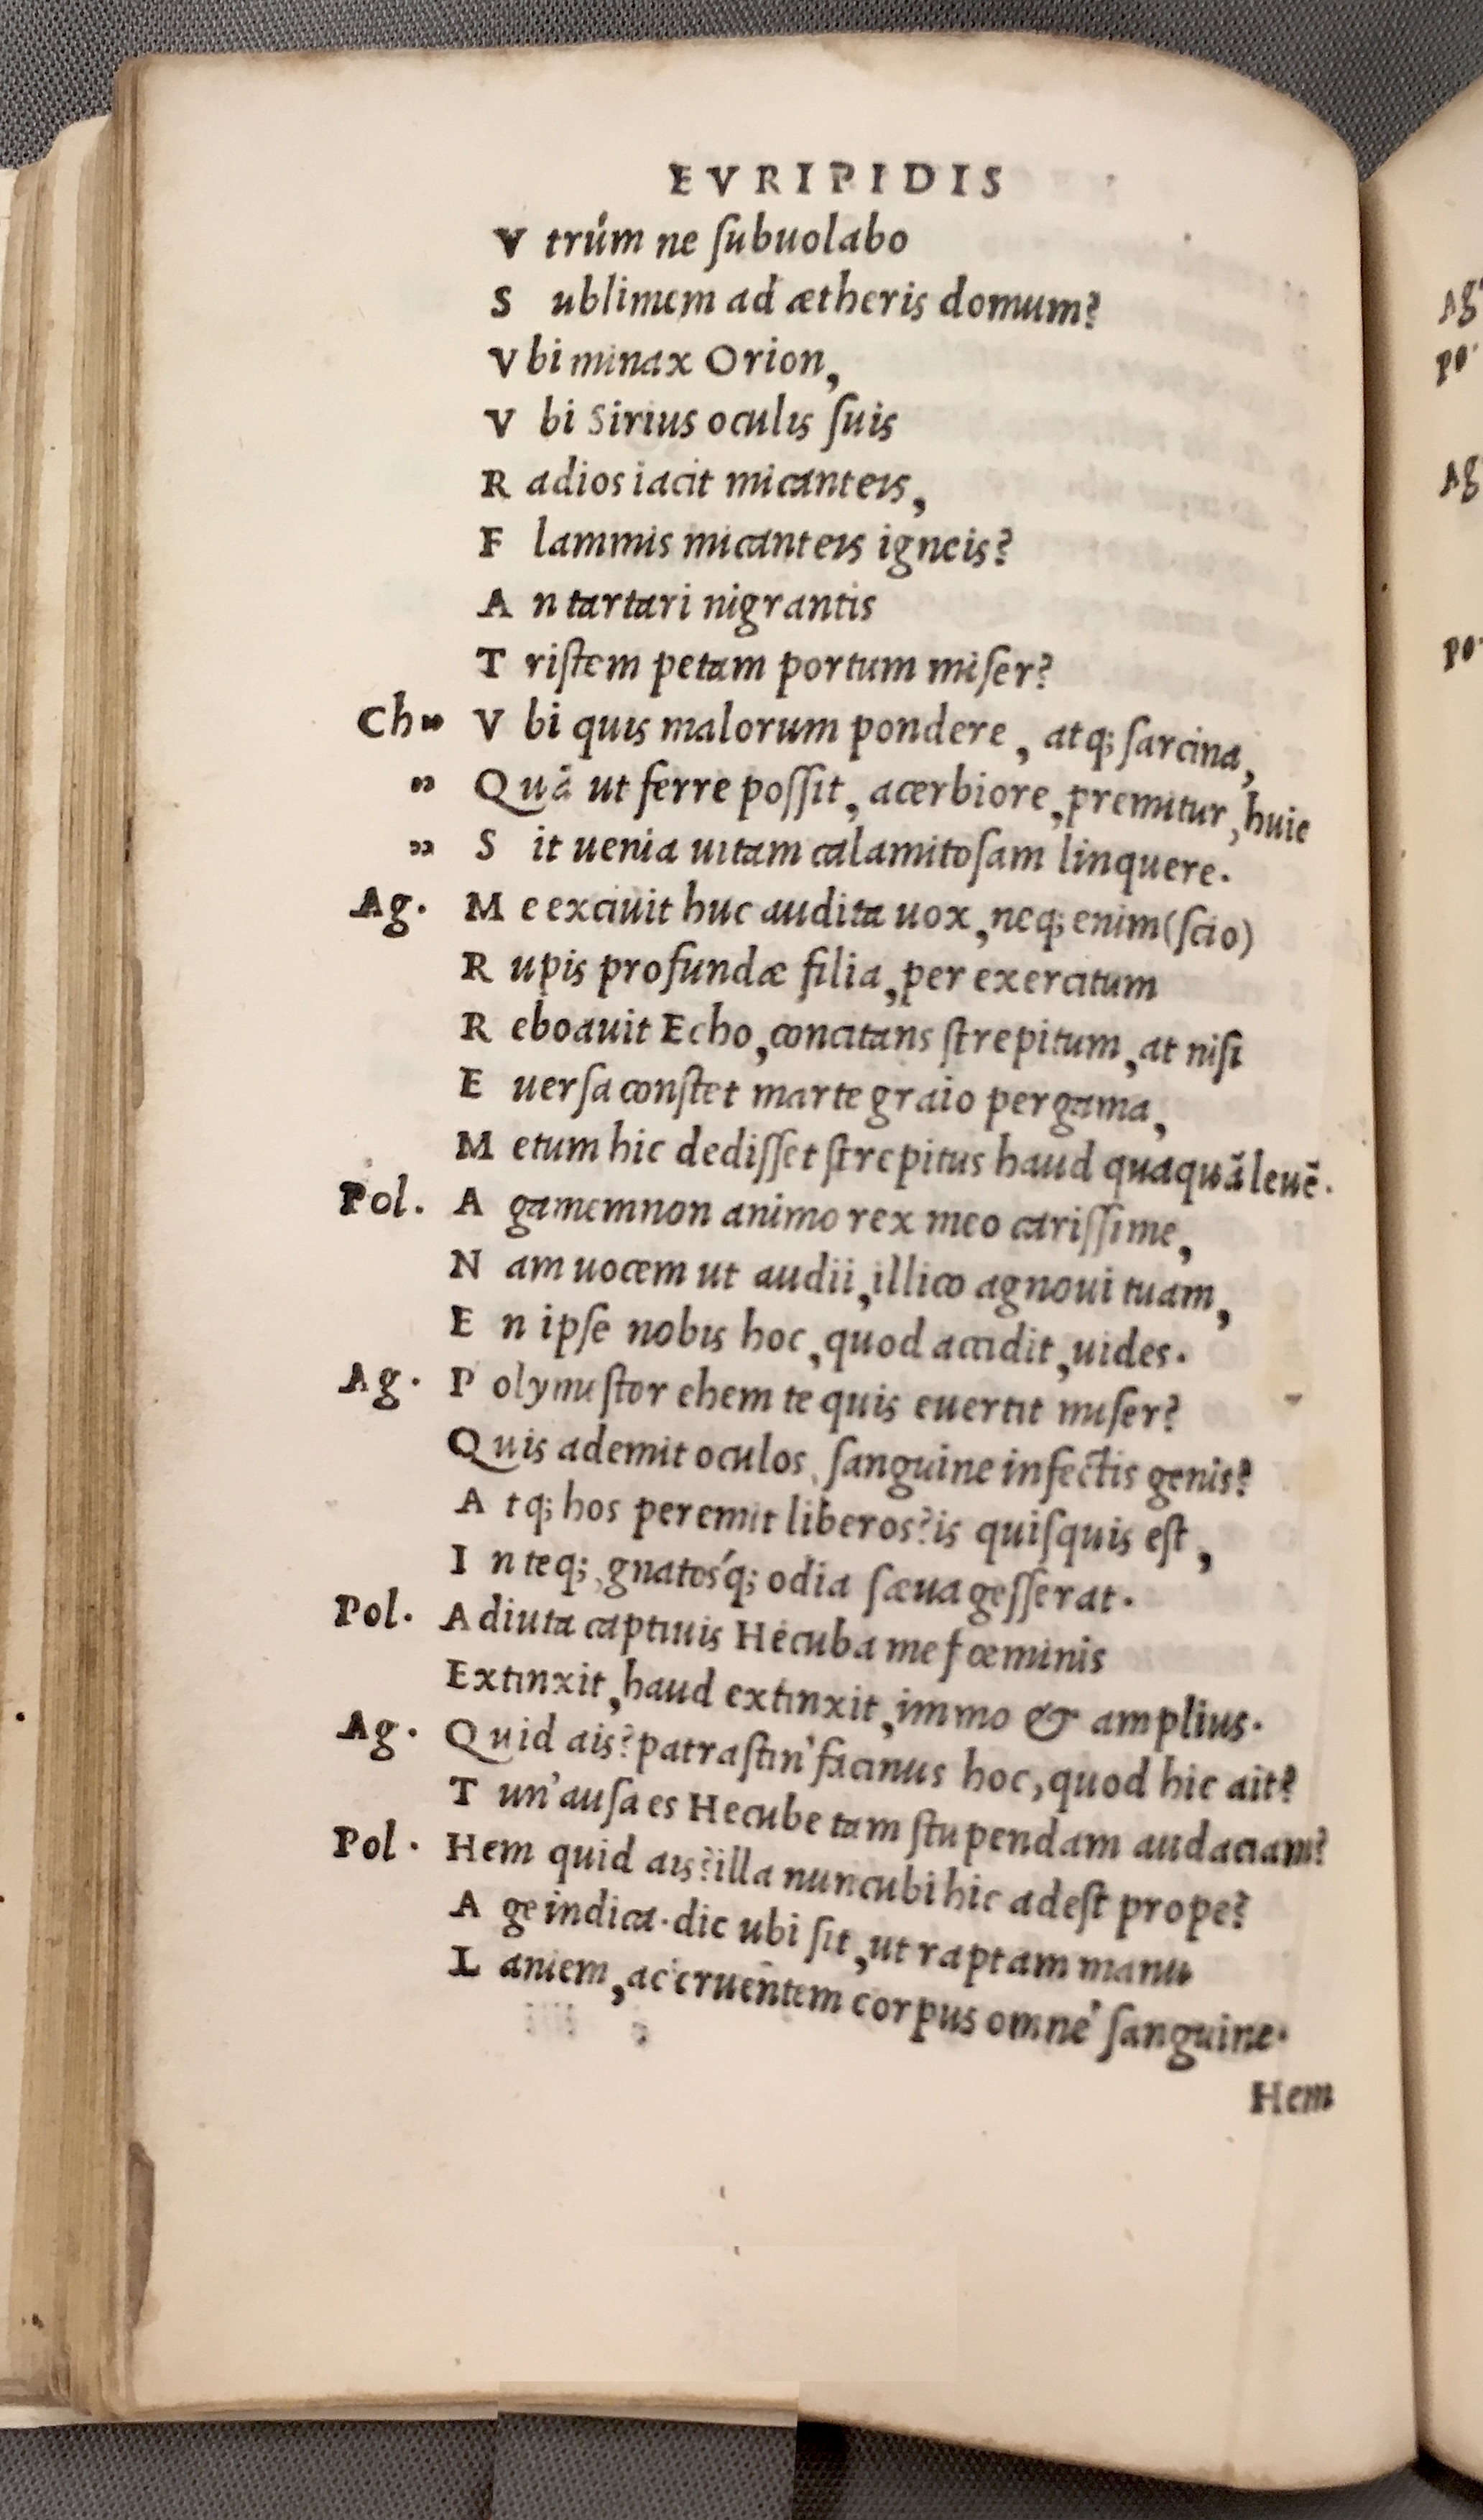 EVRIPIDIS
V trúm ne ſubuolabo
S ublimem ad ætheris domum?
V bi minax Orion,
V bi Sirius oculis ſuis
R adios iacit micanteis,
F lammis micanteis igneis?
A n tartari nigrantis
T riſtem petam portum miſer?
Ch„ V bi quis malorum pondere, atq; ſarcina,
„ Quã ut ferre poſſit, acerbiore, premitur, huic
„ S it uenia uitam calamitoſam linquere.
Ag. M e exciuit huc audita uox, neq; enim (ſcio)
R upis profundæ filia, per exercitum
R eboauit Echo, concitans ſtrepitum, at niſi
E uerſa conſtet marte graio pergama,
M etum hic dediſſet ſtrepitus haud quaquã leuẽ.
Pol. A gamemnon animo rex meo cariſſime,
N am uocem ut audii, illico agnoui tuam,
E n ipſe nobis hoc, quod accidit, uides.
Ag. P olymeſtor ehem te quis euertit miſer?
Quis ademit oculos, ſanguine infectis genis?
A tq; hos peremit liberos? is quiſquis eſt,
I n teq;, gnatoſ́q; odia ſæua geſſerat.
Pol. A diuta captiuis Hecuba me fœminis
Extinxit, haud extinxit, immo & amplius.
Ag. Quid ais? patraſtin' facinus hoc, quod hic ait?
T un' auſa es Hecube tam ſtupendam audaciam?
Pol. Hem quid ais? illa nuncubi hic adeſt prope?
A ge indica. dic ubi ſit, ut raptam manu
L aniem, ac cruentem corpus omne ſanguine.
Hem
Ag
Po.
Ag
Po.